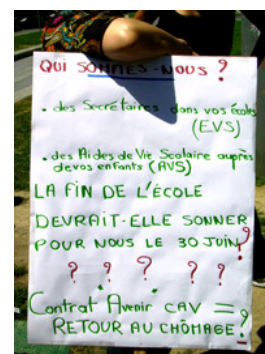 QUI SOMMES-NOUS ?
• des Secrétaires dans vos écoles
(EVS)
• des Aides de Vie Scolaire auprès
de vos enfants (AVS)
LA FIN DE L'ÉCOLE
DEVRAIT-ELLE SONNER
POUR NOUS LE 30 JUIN?
? ? ? ? ?
Contrat Avenir CAV = ?
RETOUR AU CHÔMAGE!